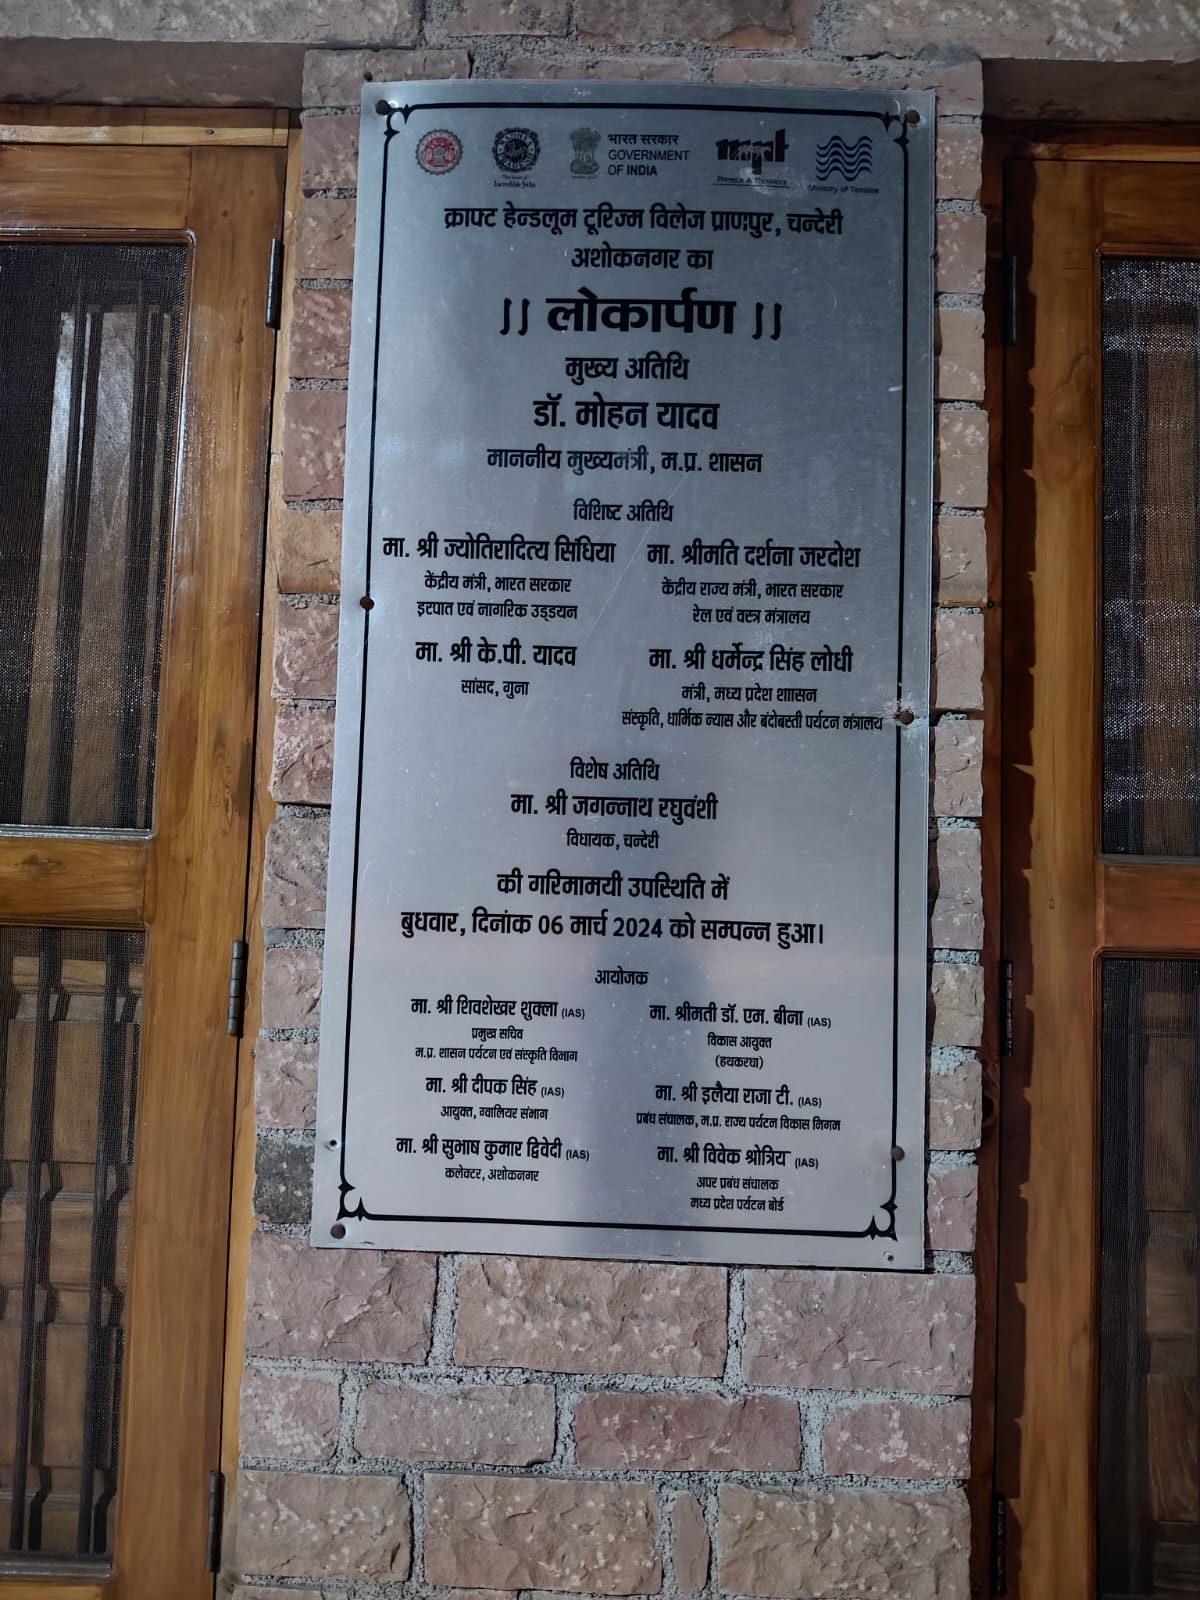 भारत सरकार
GOVERNMENT
OF INDIA
mpt
Ministry of Textiles
क्राफ्ट हेन्डलूम टूरिज्म विलेज प्राणपुर, चन्देरी
अशोकनगर का
।। लोकार्पण ।।
मुख्य अतिथि
डॉ. मोहन यादव
माननीय मुख्यमंत्री, म.प्र. शासन
विशिष्ट अतिथि
मा. श्री ज्योतिरादित्य सिंधिया
केंद्रीय मंत्री, भारत सरकार
इस्पात एवं नागरिक उड्डयन
मा. श्रीमति दर्शना जरदोश
केंद्रीय राज्य मंत्री, भारत सरकार
रेल एवं वस्त्र मंत्रालय
मा. श्री के.पी. यादव
सांसद, गुना
मा. श्री धर्मेन्द्र सिंह लोधी
मंत्री, मध्य प्रदेश शाासन
संस्कृति, धार्मिक न्यास और बंदोबस्ती पर्यटन मंत्रालय
विशेष अतिथि
मा. श्री जगन्नाथ रघुवंशी
विधायक, चन्देरी
की गरिमामयी उपस्थिति में
बुधवार, दिनांक 06 मार्च 2024 को सम्पन्न हुआ।
आयोजक
मा. श्री शिवशेखर शुक्ला (IAS)
प्रमुख सचिव
म.प्र. शासन पर्यटन एवं संस्कृति विभाग
मा. श्रीमती डॉ. एम. बीना (IAS)
विकास आयुक्त
(हथकरघा)
मा. श्री दीपक सिंह (IAS)
आयुक्त, ग्वालियर संभाग
मा. श्री इलैया राजा टी. (IAS)
प्रबंध संचालक, म.प्र. राज्य पर्यटन विकास निगम
मा. श्री सुभाष कुमार द्विवेदी (IAS)
कलेक्टर, अशोकनगर
मा. श्री विवेक श्रोत्रिय (IAS)
अपर प्रबंध संचालक
मध्य प्रदेश पर्यटन बोर्ड